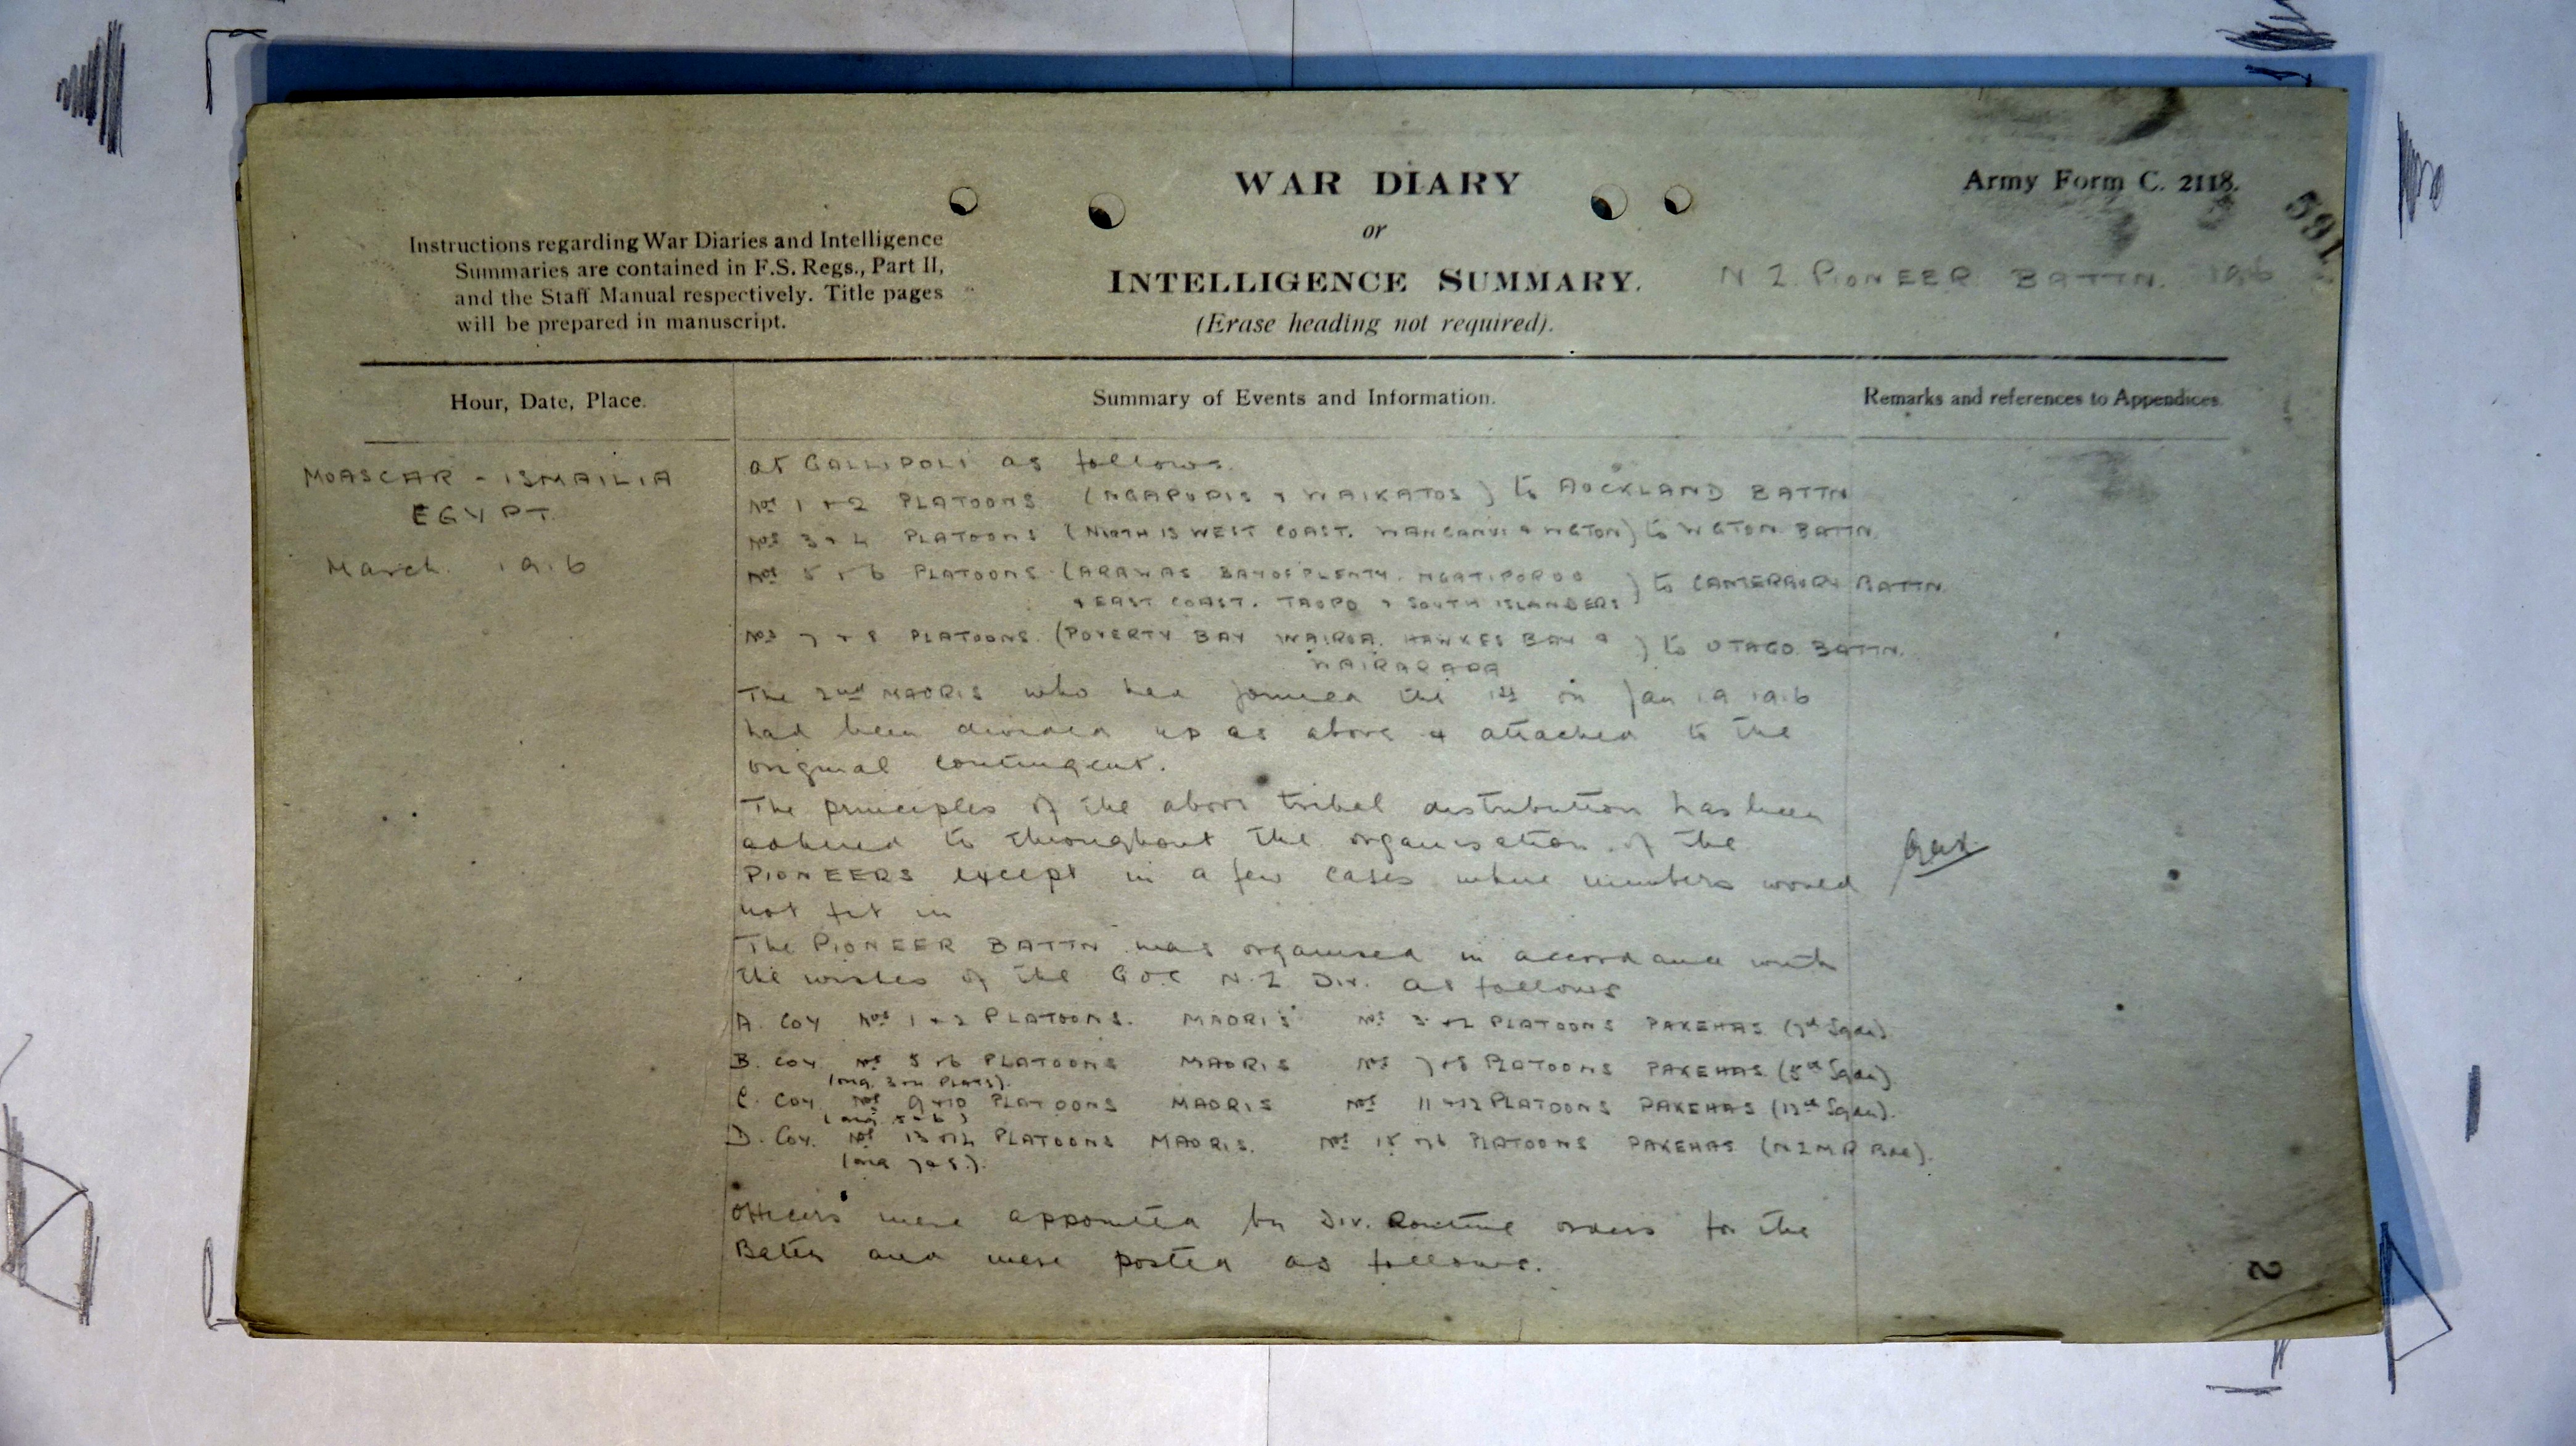 WAR DIARY
or
INTELLIGENCE SUMMARY.
(Erase heading not required).
Army Form C. 2118.
Instructions regarding War Diaries and Intelligence
Summaries are contained in F.S. Regs., Part II,
and the Staff Manual respectively. Title pages
will be prepared in manuscript.
N Z PIONEER BATTN. 1916
Hour, Date, Place.
Summary of Events and Information.
Remarks and references to Appendices.
MOASCAR - ISMAILIA
EGYPT
March 1916
at GALLIPOLI as follows.
Nos 1 + 2 PLATOONS (NGAPUHIS + WAIKATOS) to AUCKLAND BATTN
Nos 3 + 4 PLATOONS (NORTH IS WEST COAST. WANGANUI + WGTON) to WGTON BATTN.
Nos 5 + 6 PLATOONS (ARAWAS BAY OF PLENTY. NGATIPOROU
+ EAST COAST. TAUPO + SOUTH ISLANDERS) to CANTERBURY BATTN
Nos 7 + 8 PLATOONS. (POVERTY BAY WAIROA. HAWKES BAY +
WAIRARAPA) to OTAGO BATTN.
The 2nd MAORIS who had joined the 1st in Jan 19 1916
had been divided up as above + attached to the
original contingent.
The principles of the above tribal distribution has been
adhered to throughout the organisation of the
PIONEERS except in a few cases where members would
not fit in
The PIONEER BATTN was organised in accordance with
the wishes of the GOC N.Z Div. as follows
A. Coy Nos 1 + 2 PLATOONS. MAORIS Nos 3 + 4 PLATOONS PAKEHAS (7th Sqdn)
B. Coy Nos 5 + 6 PLATOONS MAORIS Nos 7 + 8 PLATOONS PAKEHAS (5th Sqdn)
(orig. 3 + 4 Plats).
C. Coy Nos 9 + 10 PLATOONS MAORIS Nos 11 + 12 PLATOONS PAKEHAS (12th Sqdn).
(orig. 5 + 6)
D. Coy. Nos 13 + 14 PLATOONS MAORIS. Nos 15 + 16 PLATOONS PAKEHAS (NZMR Bde).
(orig 7 + 8.).
Officers were appointed by Div. Routine orders for the
Battn and were posted as follows.
2